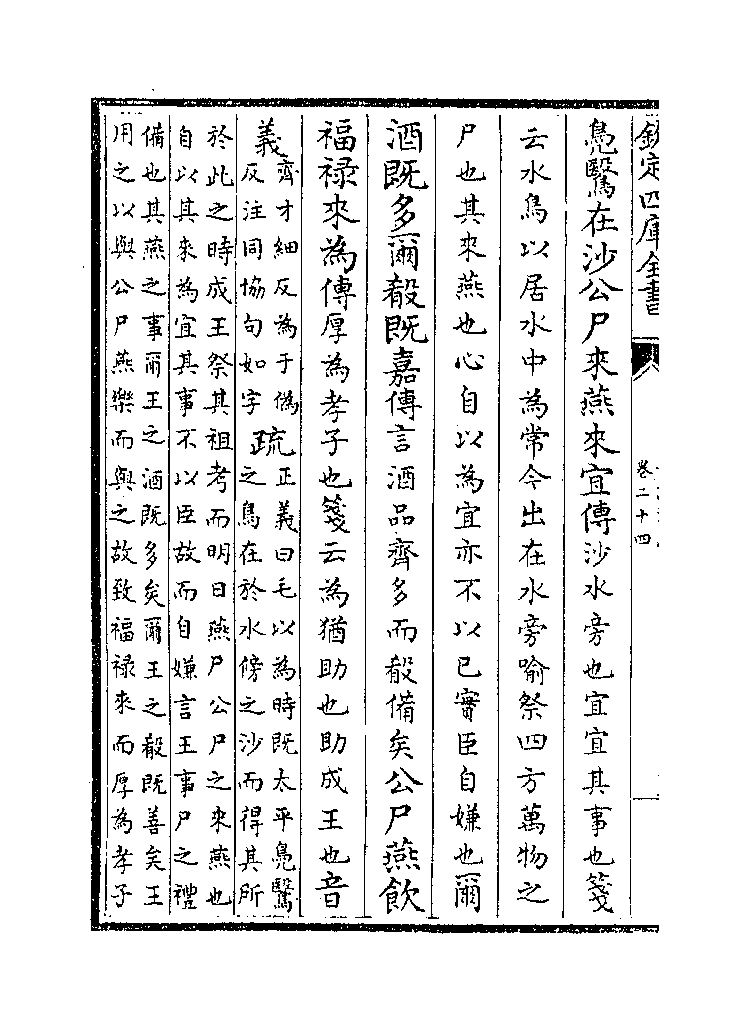 欽定四庫全書
卷二十四
鳧鷖在沙公尸來燕來宜傳沙水旁也宜宜其事也箋
云水鳥以居水中為常今出在水旁喻祭四方萬物之
尸也其來燕也心自以為宜亦不以已實臣自嫌也爾
酒既多爾殽既嘉傳言酒品齊多而殽備矣公尸燕飲
福祿來為傳厚為孝子也箋云為猶助也助成王也音
義
齊才細反為于偽
反注同協句如字
疏
正義曰毛以為時既太平鳧鷖
之鳥在於水傍之沙而得其所
於此之時成王祭其祖考而明日燕尸公尸之來燕也
自以其來為宜其事不以臣故而自嫌言王事尸之禮
備也其燕之事爾王之酒既多矣爾王之殽既善矣王
用之以與公尸燕樂而與之故致福祿來而厚為孝子